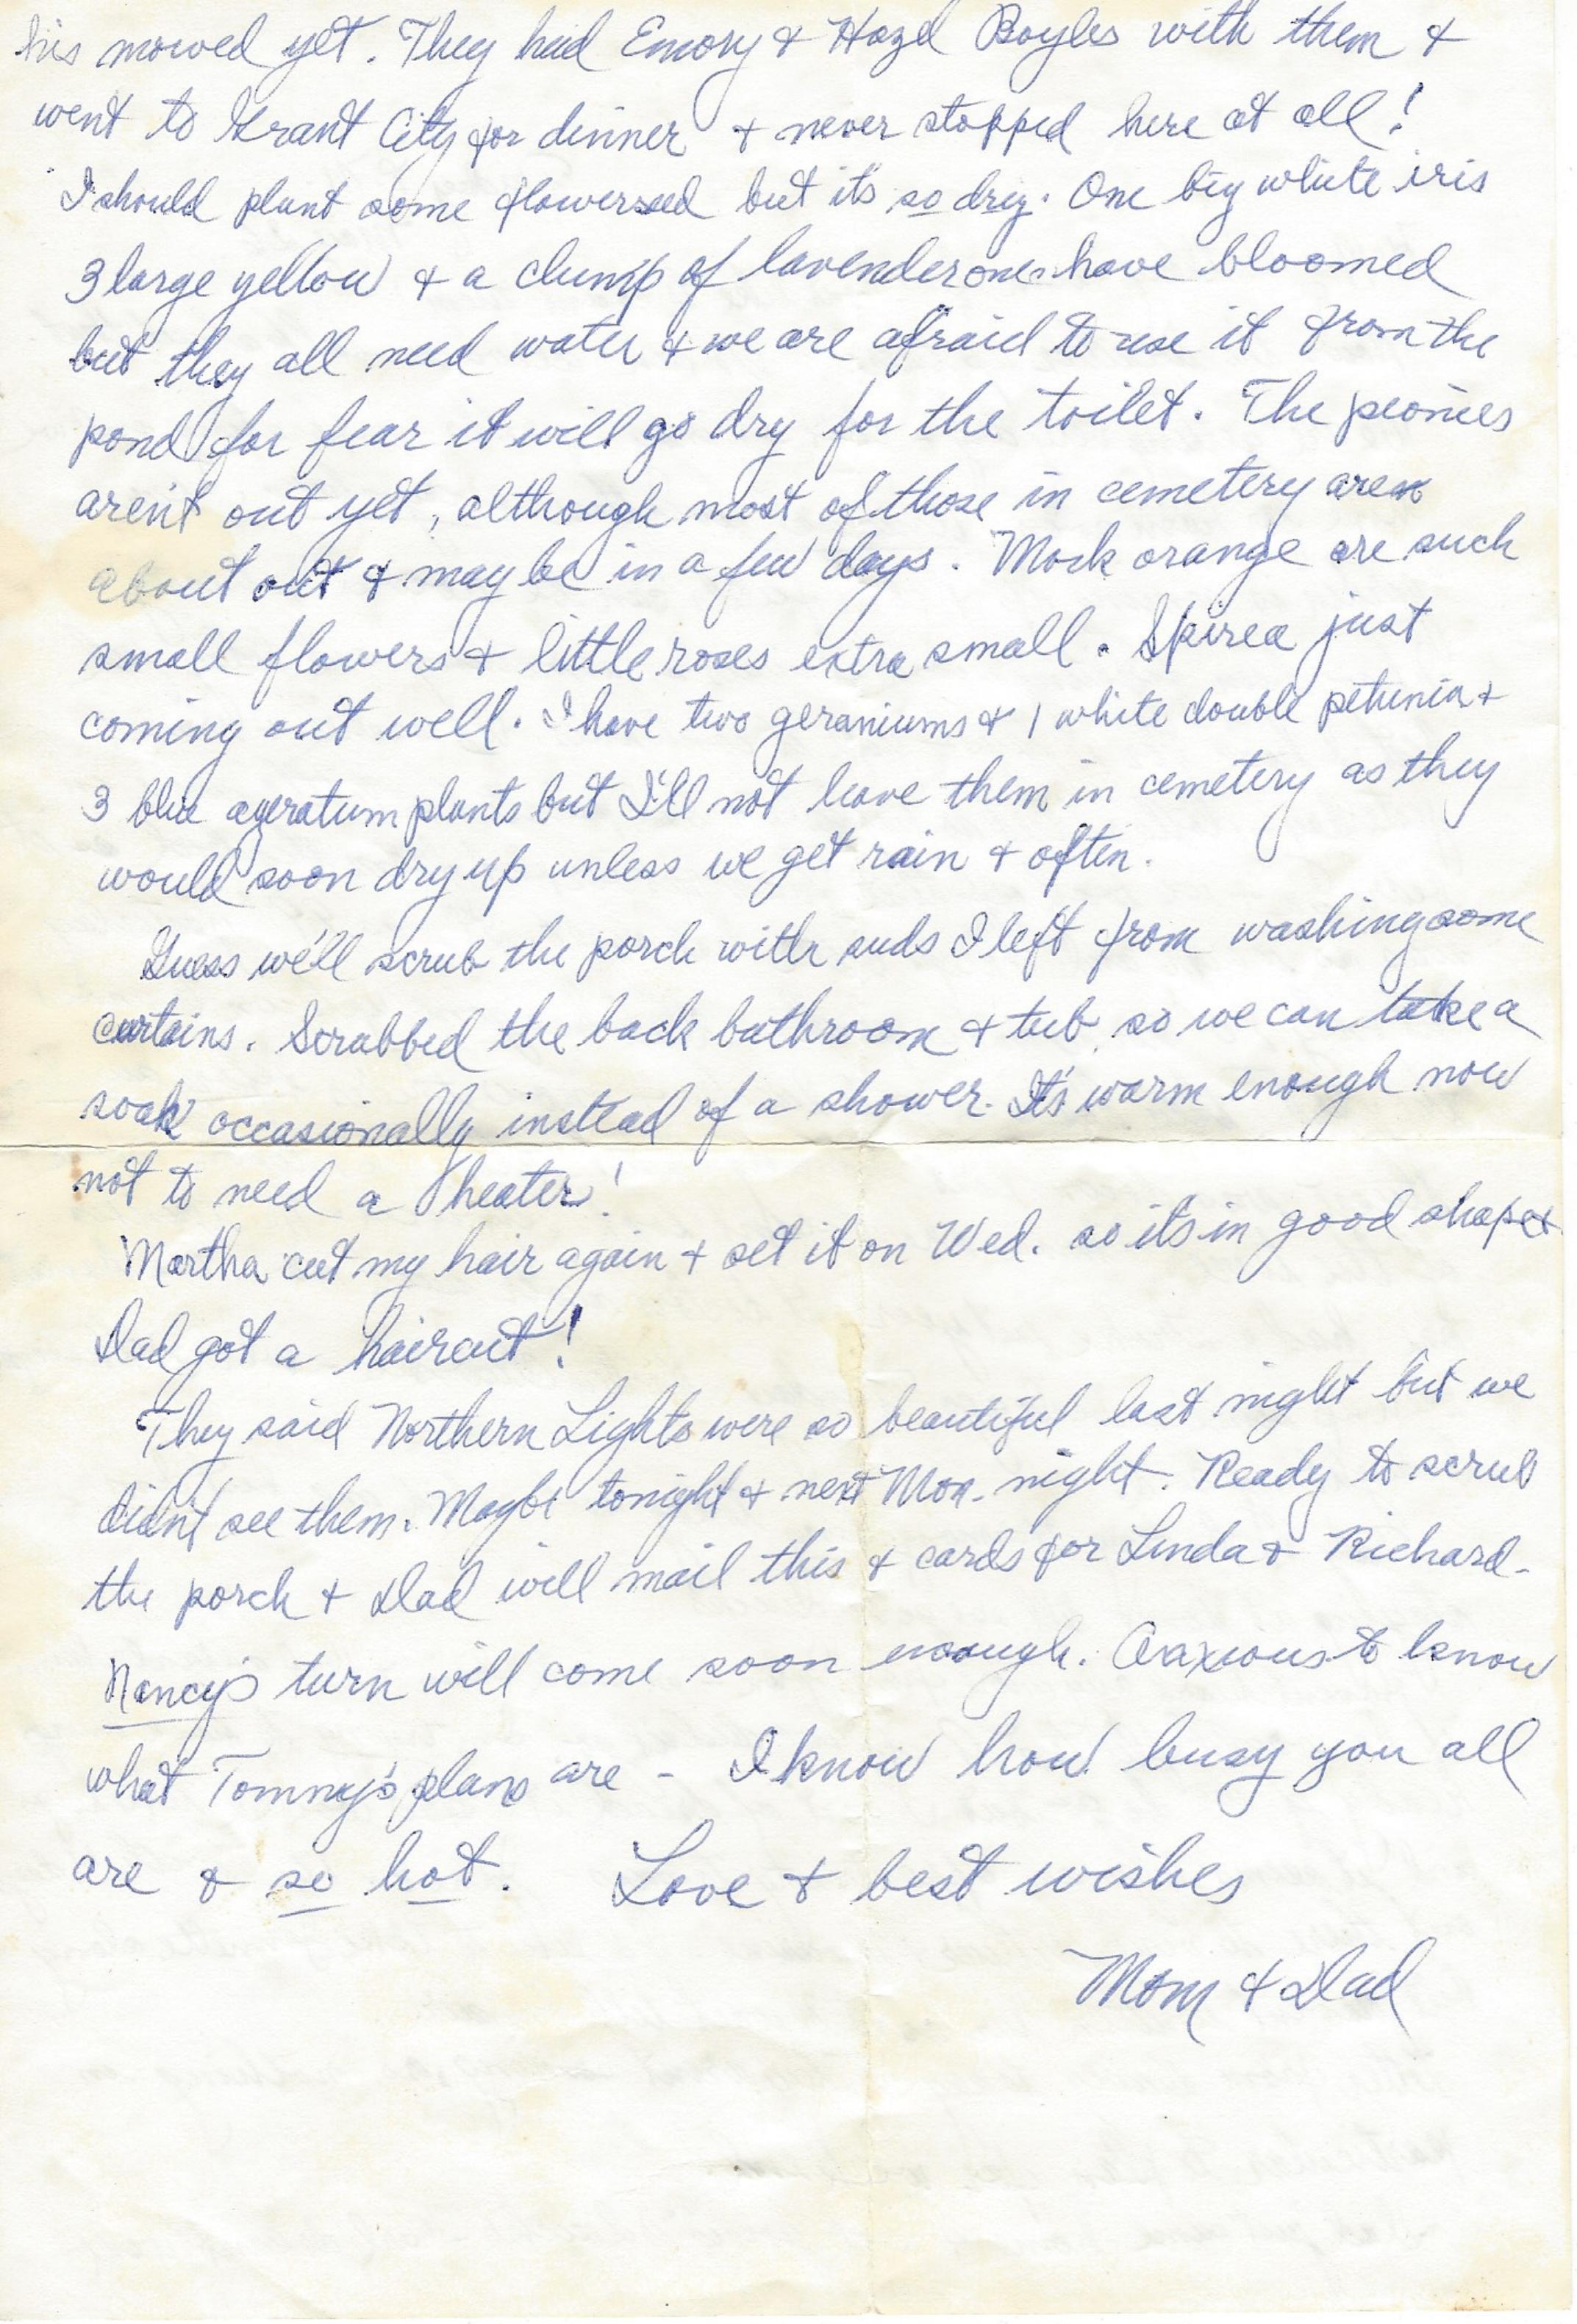 his mowed yet. They had Emory & Hazel Boyles with them &
went to Grant City for dinner & never stopped here at all!
I should plant some flowerseed but it's so dry. One big white iris
3 large yellow & a clump of lavender ones have bloomed
but they all need water & we are afraid to use it from the
pond for fear it will go dry for the toilet. The peonies
aren't out yet, although most of those in cemetery are
about out & may be in a few days. Mock orange are such
small flowers & little roses extra small. Spirea just
coming out well. I have two geraniums & 1 white double petunia &
3 blue ageratum plants but I'll not leave them in cemetery as they
would soon dry up unless we get rain & often.
Guess we'll scrub the porch with suds I left from washing some
curtains. Scrubbed the back bathroom & tub, so we can take a
soak occasionally instead of a shower. It's warm enough now
not to need a heater!
Martha cut my hair again & set it on Wed. so its in good shape &
Dad got a haircut!
They said Northern Lights were so beautiful last night but we
didn't see them. Maybe tonight & next Mon. night. Ready to scrub
the porch & Dad will mail this & cards for Linda & Richard-
Nancy's turn will come soon enough. Anxious to know
what Tommy's plans are - I know how busy you all
are & so hot. Love & best wishes
Mom & Dad